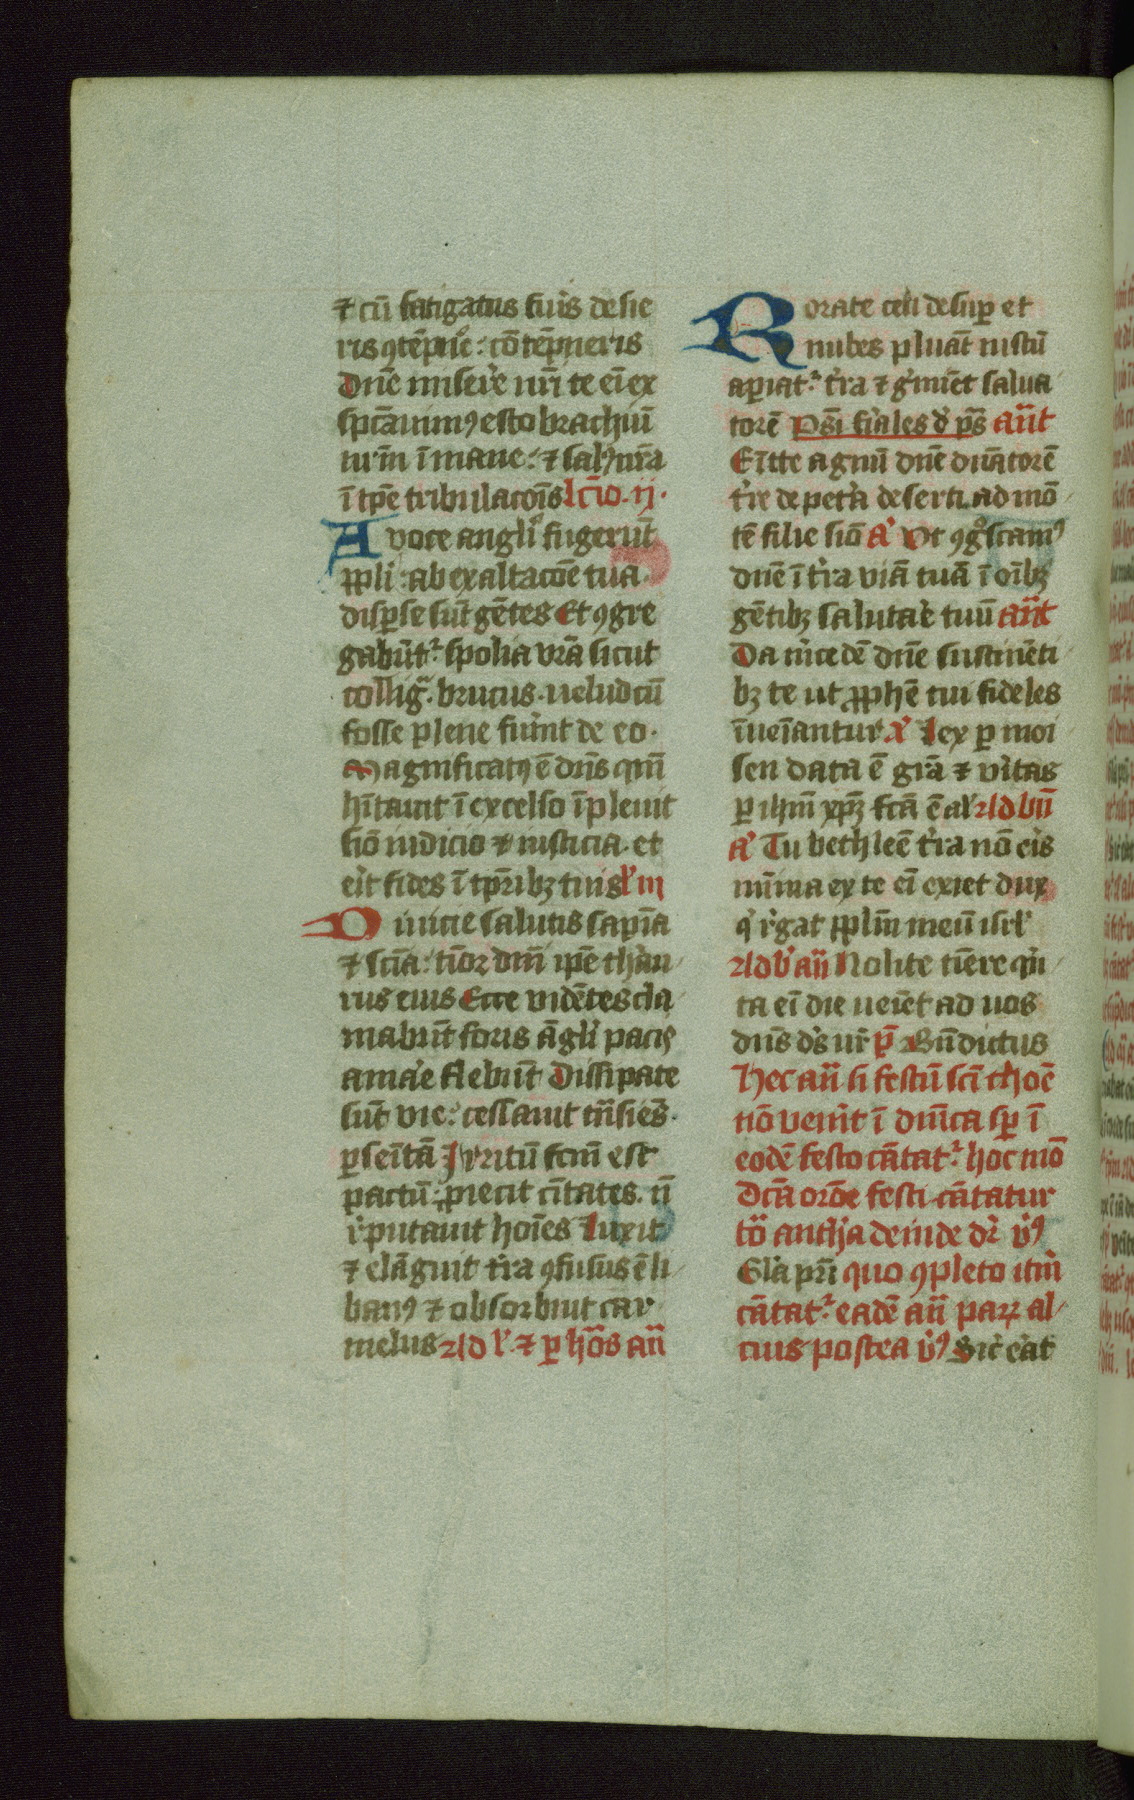 ⁊ cū fatigatus fuͥs desie
ris ꝯtēpnͤe: cōtēpneris
Dn̄e miserͤe nr̄i te eī ex
spcāuimꝰ esto brachiū
nr̄m ī mane: ⁊ salꝰ nr̄a
ī tp̄e tribulacōis lcīo. ij.
A voce angͥli fugerūt
ppli: ab exaltacōe tua
disp̱se sūt gētes Et ꝯgre
gabūtᷣ spolia vrā sicut
colligͥᷣ. brucus. uelud cū
fosse plene fuͥnt de eo.
Magnificatꝰ ē dn̄s qm̄
hītauit ī excelso īpleuit
siō iudicio ⁊ iusticia. et
erͥt fides ī tp̄ribꝫ tuis lͦ iij
Diuicie salutis sapīa
⁊ scīa: tīor dn̄i ip̄e thāu
rus eius Ecce vidētes cla
mabūt foris āgͥli pacis
amarͤe flebūt Dissipate
sūt vie: cessauit trāsiēs.
p̱ seītā Irritū fcm̄ est
pactū: ꝓiecit cītates. ñ
rͤputauit hoīes Luxit
⁊ elāguit tͤra ꝯfusus ē li
banꝰ ⁊ obsorbuit car
melus rld lͦ. ⁊ p̱ hōs an̄
Rorate celi desup̱ et
nubes pluāt iustū
ap̱iatᷣ tͤra ⁊ gͤmīet salua
torē Ps̄i fiͤales dͤ ps̄ an̄t
Emītte agnū dn̄e dn̄atorē
tͤre de petͣa deserti. ad mō
tē filie siō aͣ Ut ꝯgͦscamꝰ
dn̄e ī tͤra viā tuā ī oībꝫ
gētibꝫ salutarͤe tuū an̄t
Da mͤcedē dn̄e sustinēti
bꝫ te ut ꝓphē tui fideles
īueīantur aͣ lex p̱ moi
sen data ē grā ⁊ vͤitas
p̱ ihm̄ xp̄ꝫ fcā ē alͥ rld bn̄
aͣ Tu bethleē tͤra nō eͥs
mīma ex te eī exiet dux
qͥ rͤgat pplm̄ meū isrͦl
rld bͤ an̄ Nolite tīere qͥn
ta eī die ueīet ad uos
dn̄s dͤs nr̄ p̄ Bn̄dictus
Hec an̄ si festū scī thōe
nō venīt ī dn̄ica sp̱ ī
eodē festo cātatᷣ hoc mō
Dcā orōe festi cātatur
tō antͥha deinde drͥ v̄ꝰ
Glͥa pr̄i quo ꝯpleto itm̄
cātatᷣ eadē an̄ parꝝ al
cius postea v̄ꝰ Sicͥ eͣat